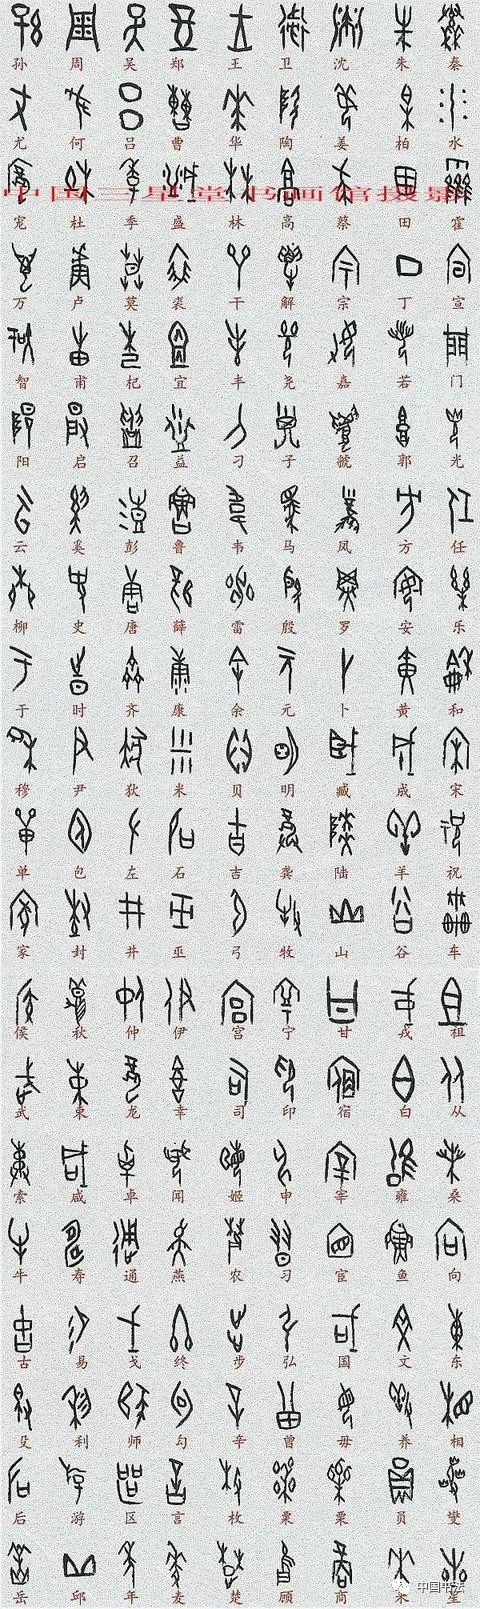 孙 周 吴 郑 王 卫 沈 朱 秦
尤 何 吕 曹 华 陶 姜 柏 水
中国三星堂书画馆摄影
宠 杜 季 盛 林 高 蔡 田 霍
万 卢 莫 裘 干 解 宗 丁 宣
智 甫 杞 宜 丰 尧 嘉 若 门
阳 启 召 益 刁 子 虢 郭 光
云 奚 彭 鲁 韦 马 凤 方 任
柳 史 唐 薛 雷 殷 罗 安 乐
于 时 齐 康 余 元 卜 黄 和
穆 尹 狄 米 贝 明 臧 成 宋
单 包 左 石 吉 龚 陆 羊 祝
家 封 井 巫 弓 牧 山 谷 车
侯 秋 仲 伊 宫 宁 甘 戎 祖
武 束 龙 幸 司 印 宿 白 从
索 咸 卓 闻 姬 申 宰 雍 桑
牛 寿 通 燕 农 习 宦 鱼 向
古 易 戈 终 步 弘 国 文 东
殳 利 师 勾 辛 曾 毋 养 相
后 游 区 言 枚 粟 栗 员 燮
岳 邱 年 麦 楚 顾 商 米 星
中国书法